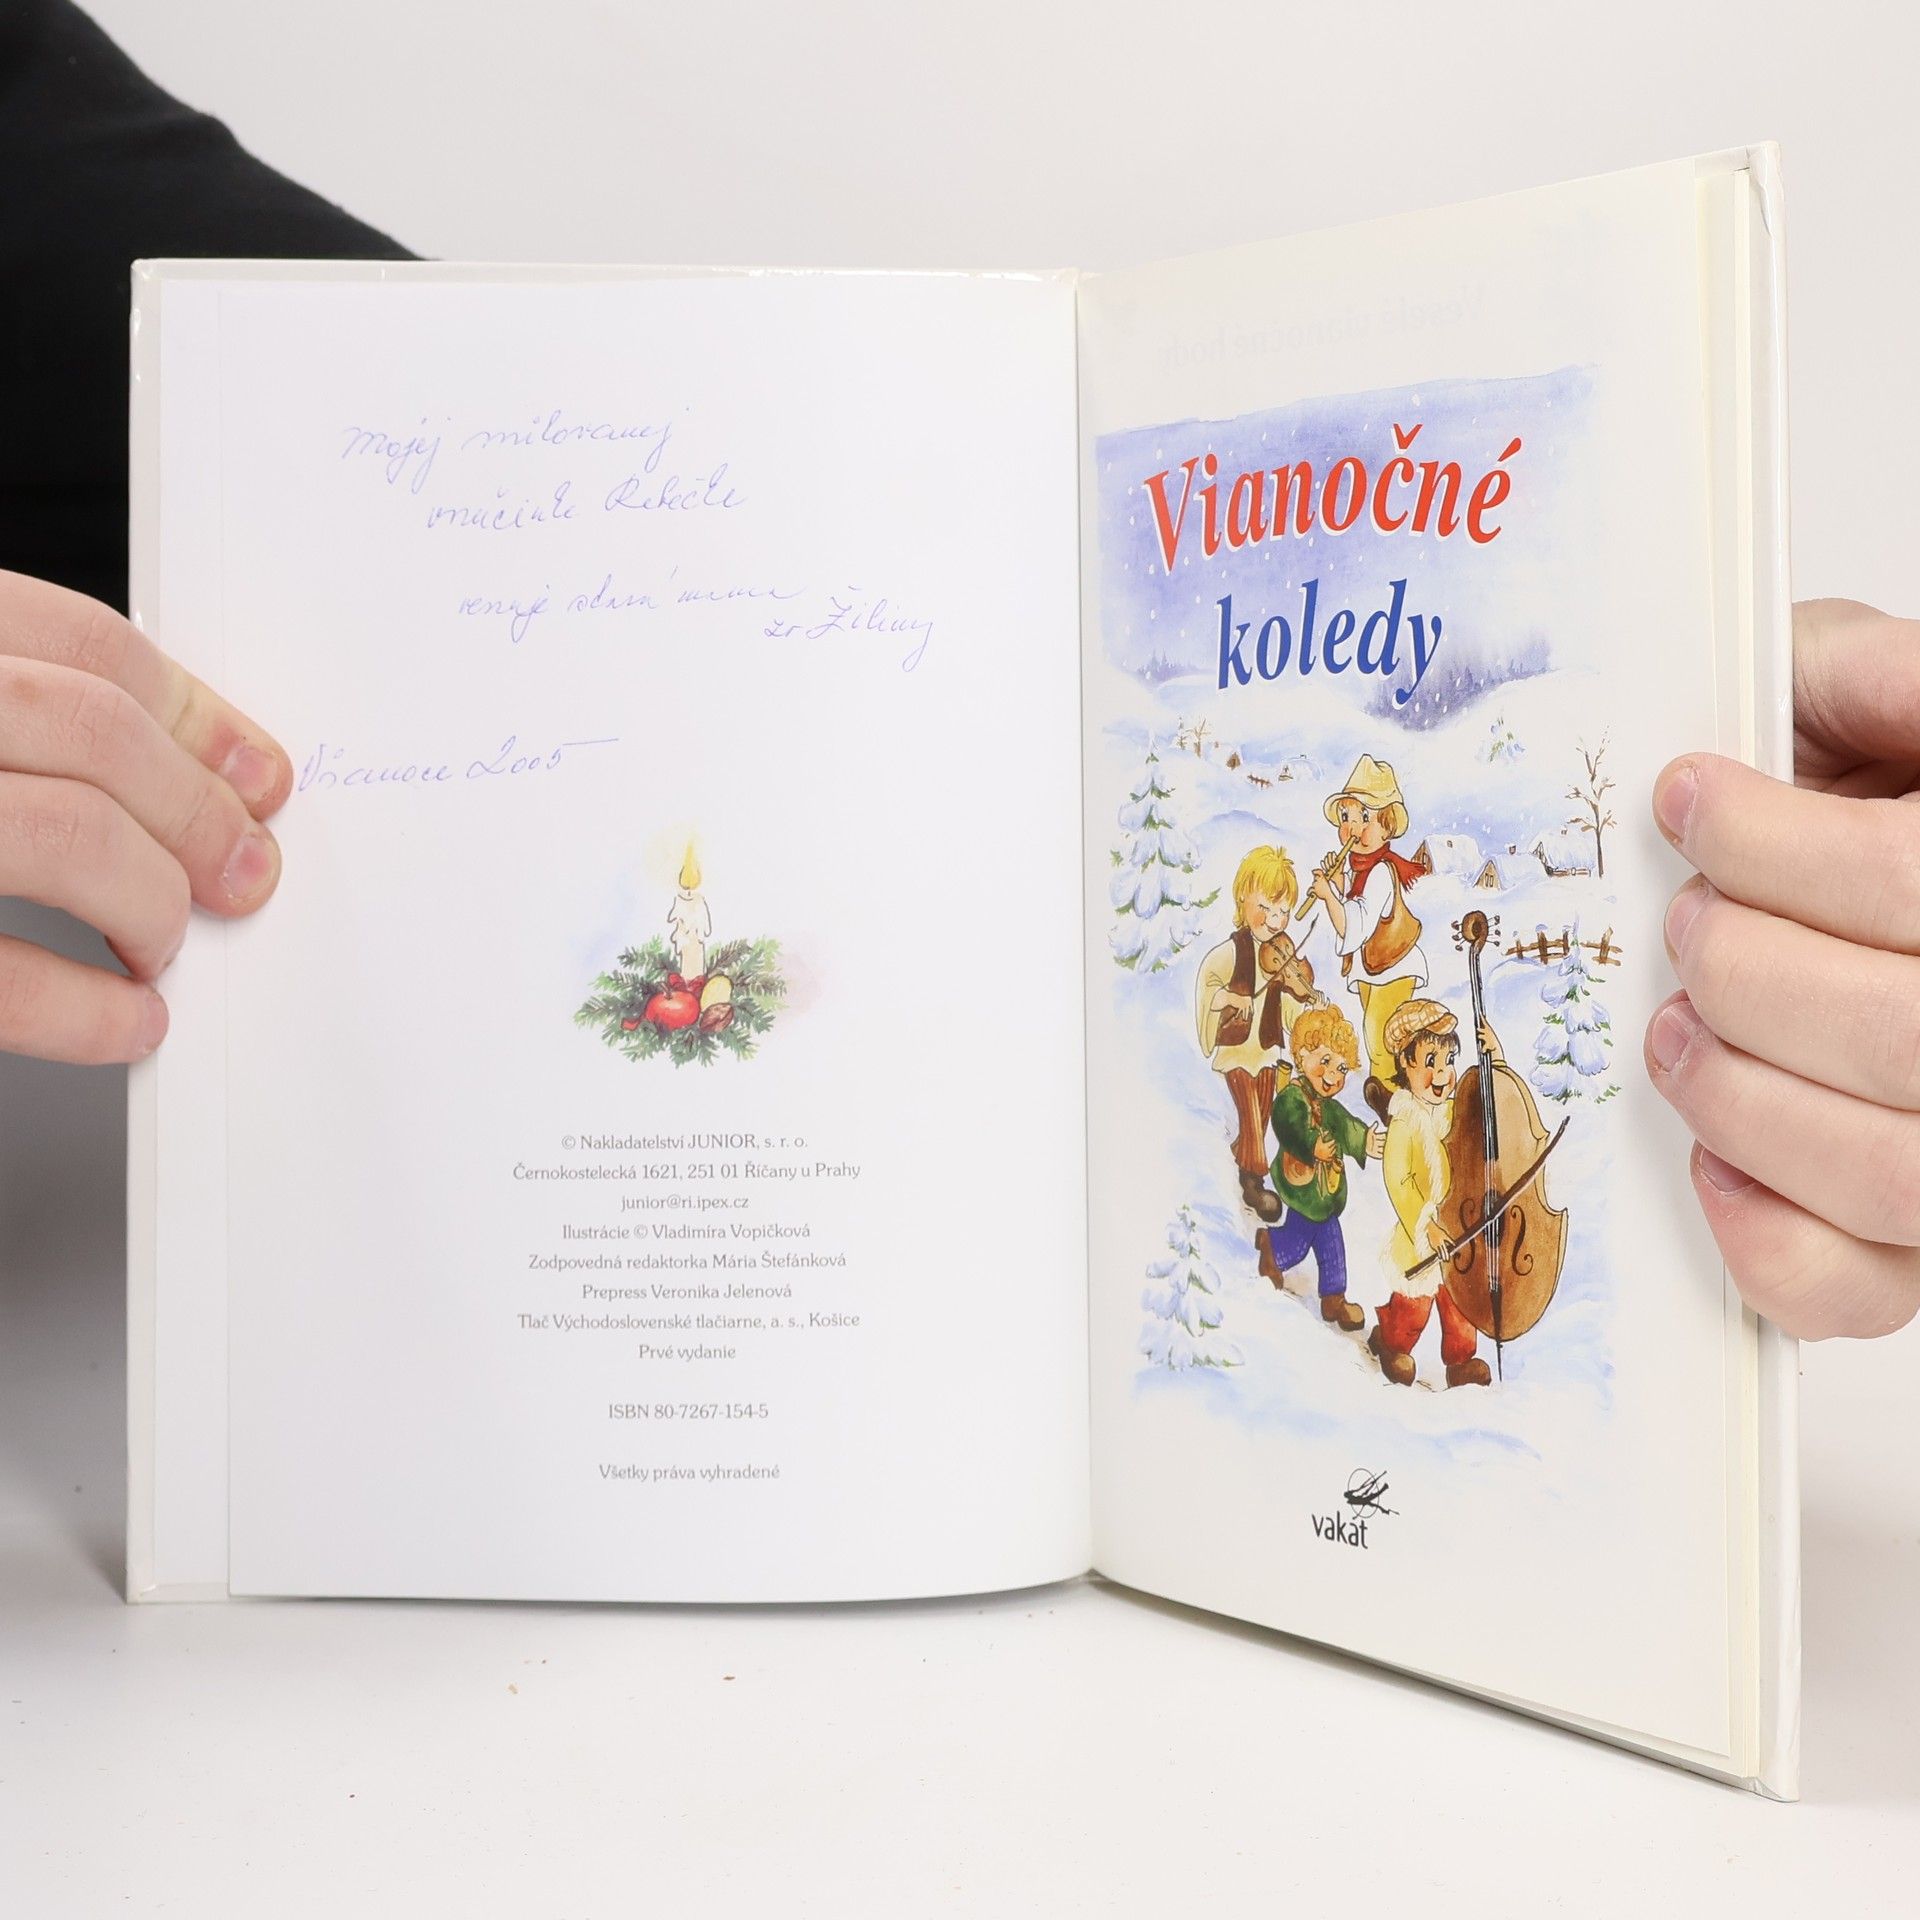 Mojej milovanej
vnučinke Rebečke
venuje stará mama
zo Žiliny
Vianoce 2005
© Nakladatelství JUNIOR, s. r. o.
Černokostelecká 1621, 251 01 Říčany u Prahy
junior@ri.ipex.cz
Ilustrácie © Vladimíra Vopičková
Zodpovedná redaktorka Mária Štefánková
Prepress Veronika Jelenová
Tlač Východoslovenské tlačiarne, a. s., Košice
Prvé vydanie
ISBN 80-7267-154-5
Všetky práva vyhradené
Veselé vianočné hody
Vianočné
koledy
vakát